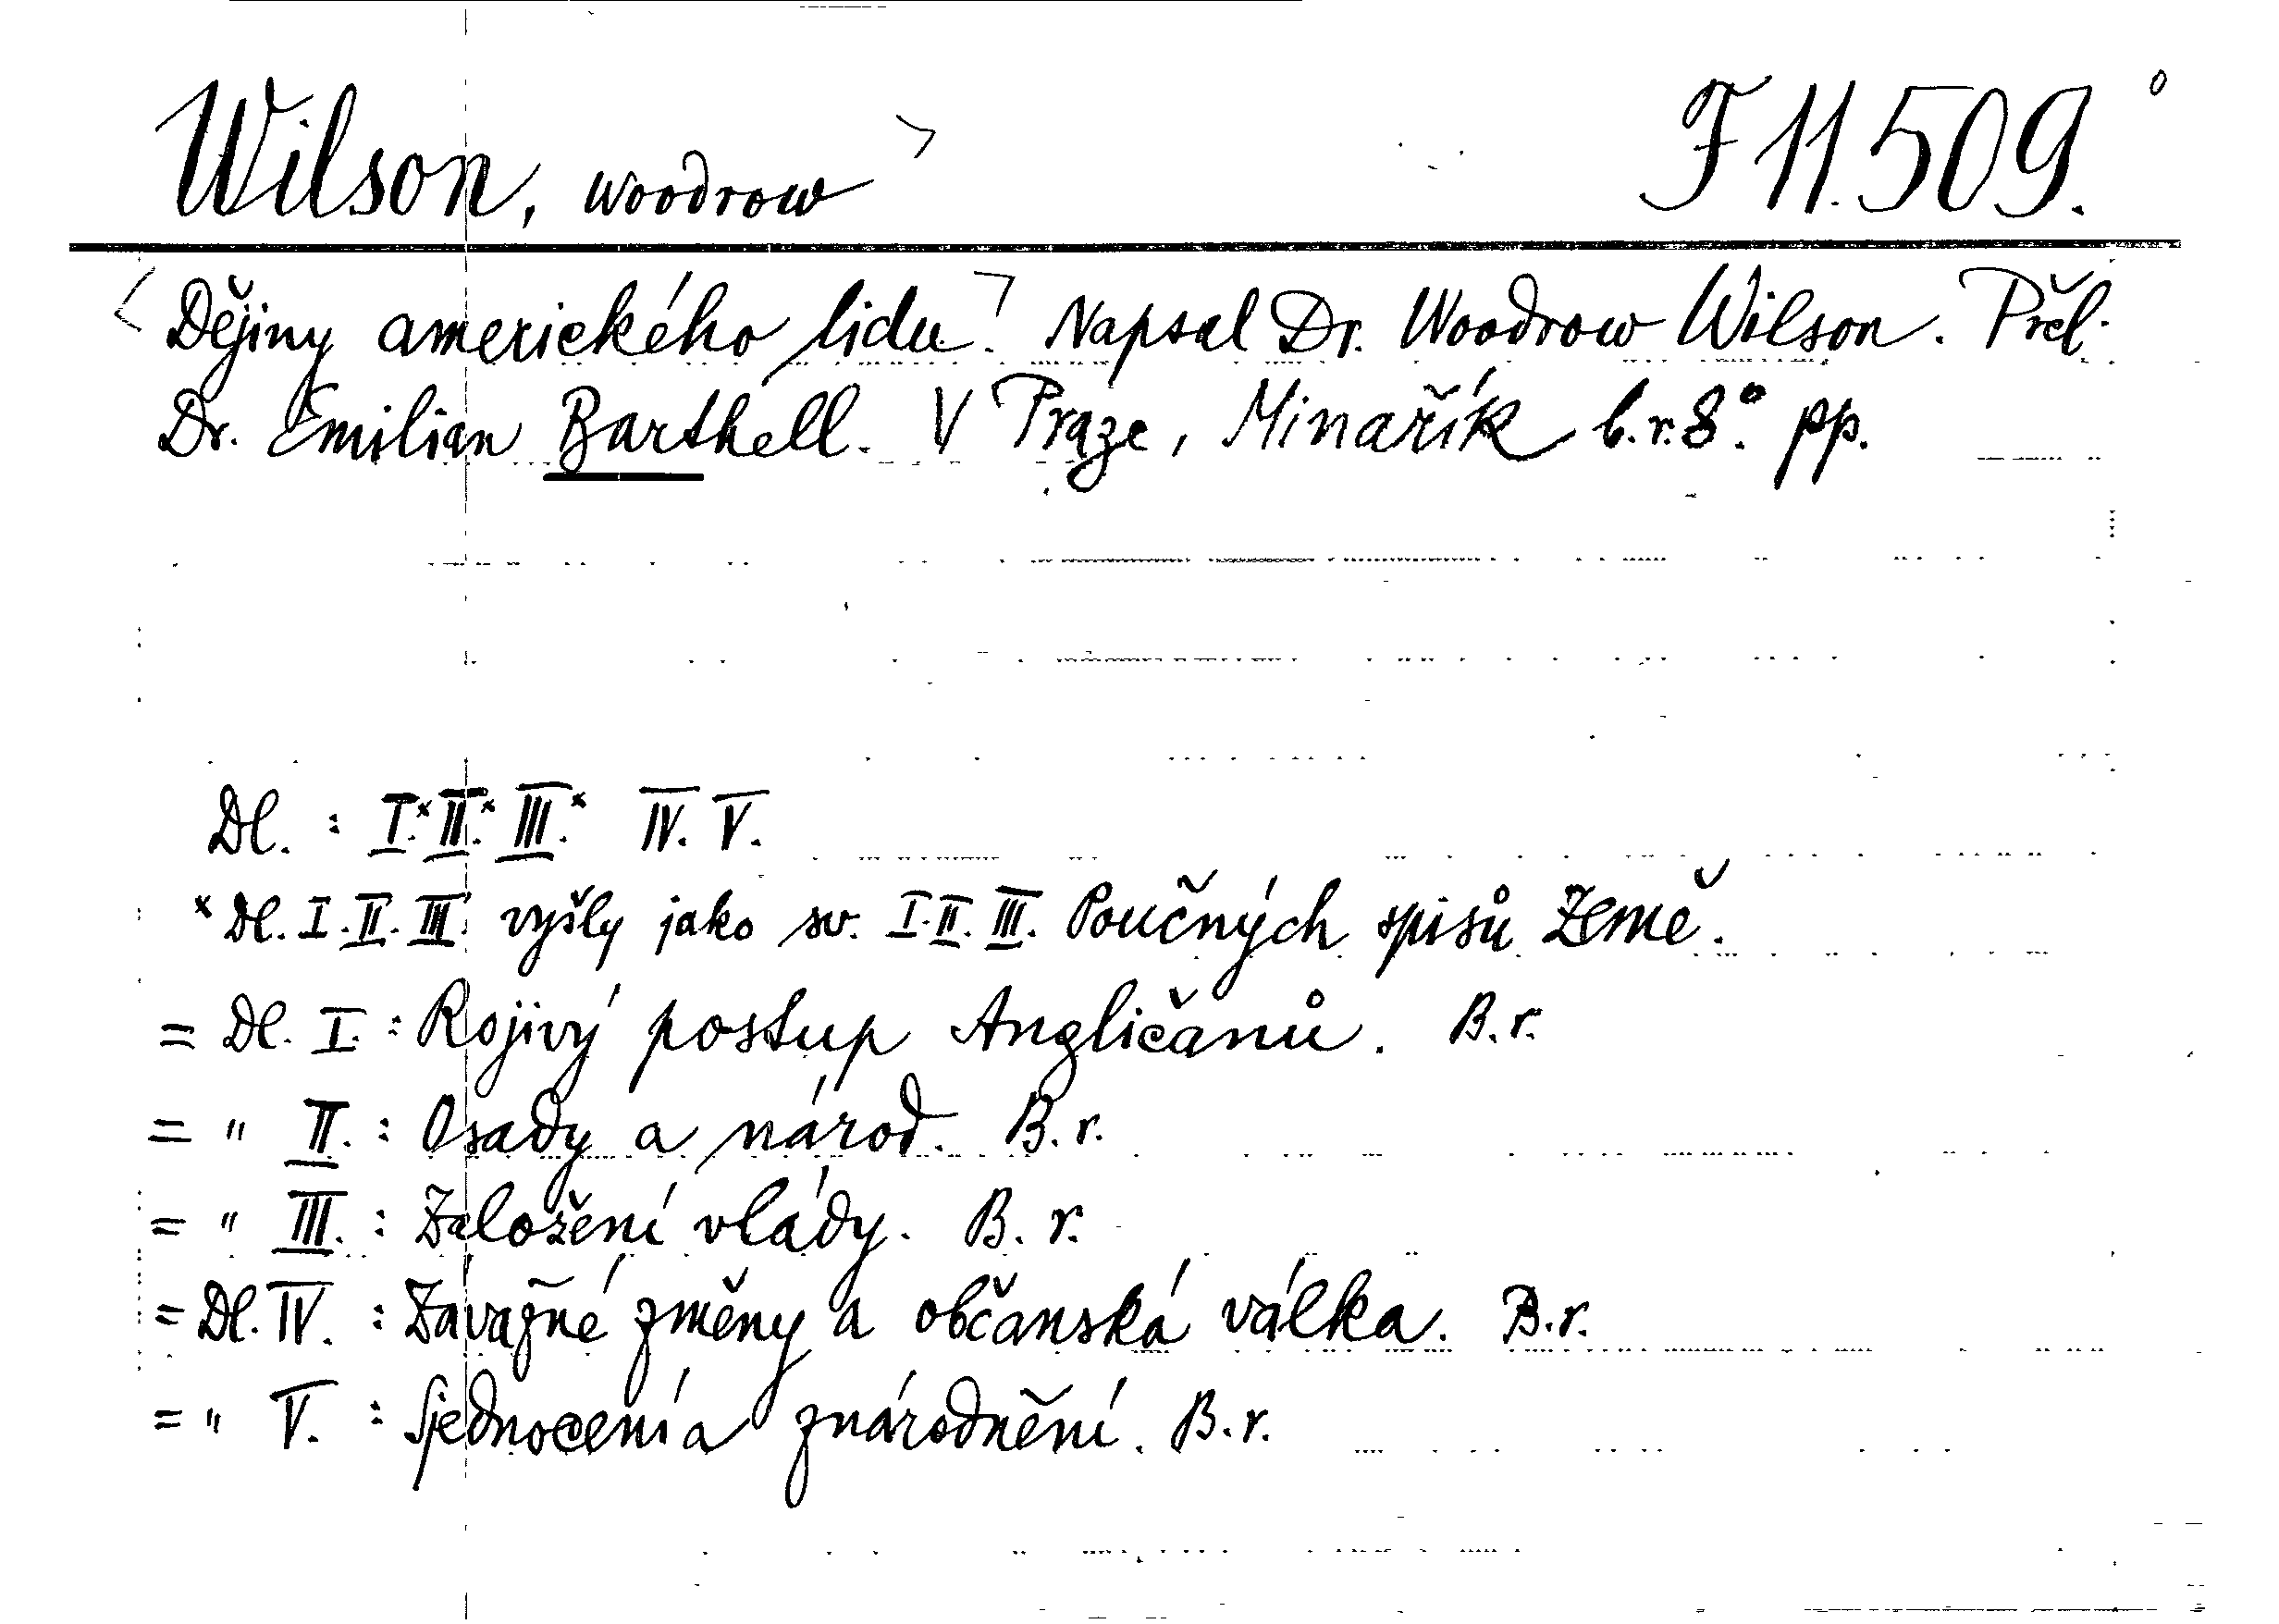 Wilson, Woodrow F 11.509.
Dějiny amerického lidu. Napsal Dr. Woodrow Wilson. Přel.
Dr. Emilian Barthell. V Praze, Minařík b.r. 8°. pp.
Dl. : I.ˣ II.ˣ III.ˣ IV. V.
ˣ Dl. I. II. III. vyšly jako sv. I. II. III. Poučných spisů Země.
= Dl. I. : Rojivý postup Angličanů. B.r.
= " II. : Osady a národ. B.r.
= " III. : Založení vlády. B. r.
= Dl. IV. : Závažné změny a občanská válka. B.r.
= " V. : Sjednocení a znárodnění. B.r.